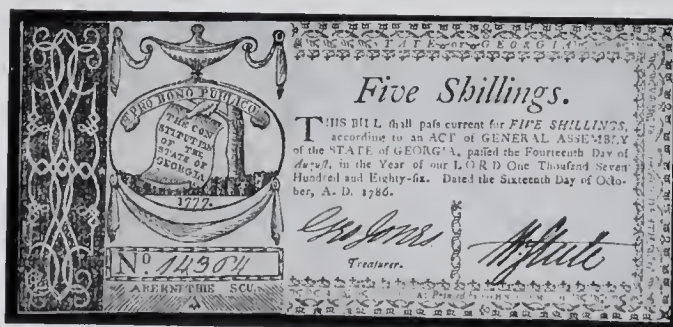 PRO BONO PUBLICO
THE CON
STITUTION
OF THE
STATE OF
GEORGIA
1777.
No. 14304
ABERNETHIE SCU.
STATE OF GEORGIA
Five Shillings.
THIS BILL ſhall paſs current for FIVE SHILLINGS,
according to an ACT of GENERAL ASSEMBLY
of the STATE of GEORGIA, paſſed the Fourteenth Day of
Auguſt, in the Year of our LORD One Thouſand Seven
Hundred and Eighty-ſix. Dated the Sixteenth Day of Octo-
ber, A. D. 1786.
Geo Jones
Treaſurer.